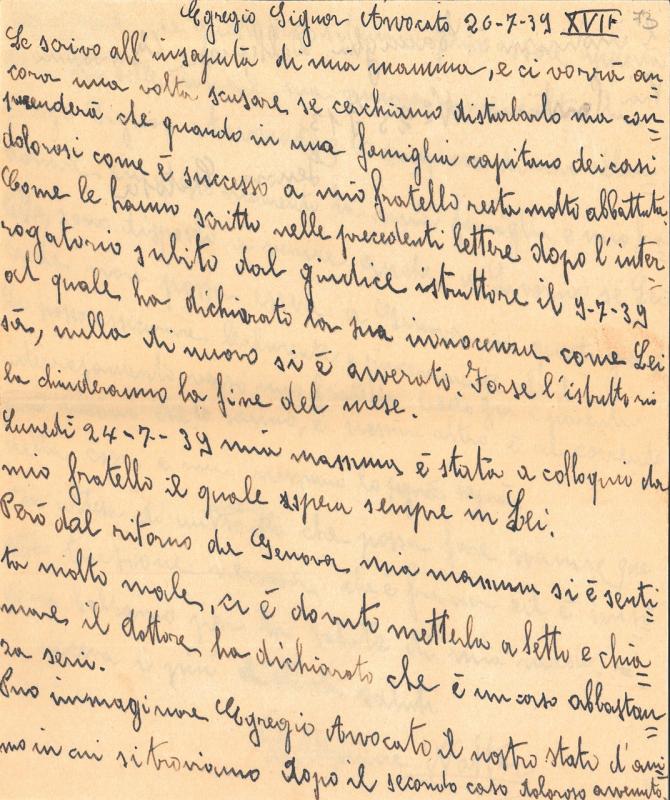 Egregio Signor Avvocato 26-7-39 XVII° 73
Le scrivo all'insaputa di mia mamma, e ci vorrà an=
cora una volta scusare se cerchiamo disturbarlo ma com=
prenderà che quando in una famiglia capitano dei casi
dolorosi come è successo a mio fratello resta molto abbattuta.
Come le hanno scritto nelle precedenti lettere dopo l'inter=
rogatorio subito dal giudice istruttore il 9-7-39
al quale ha dichiarato la sua innocenza come Lei
sà, nulla di nuovo si è avverato. Forse l'istruttoria
la chiuderanno la fine del mese.
Lunedì 24-7-39 mia mamma è stata a colloquio da
mio fratello il quale spera sempre in Lei.
Però dal ritorno da Genova, mia mamma si è senti=
ta molto male, ci è dovuto metterla a letto e chia=
mare il dottore, ha dichiarato che è un caso abbastan=
za serio.
Può immaginare Egregio Avvocato il nostro stato d'ani=
mo in cui si troviamo dopo il secondo caso doloroso avvenuto.